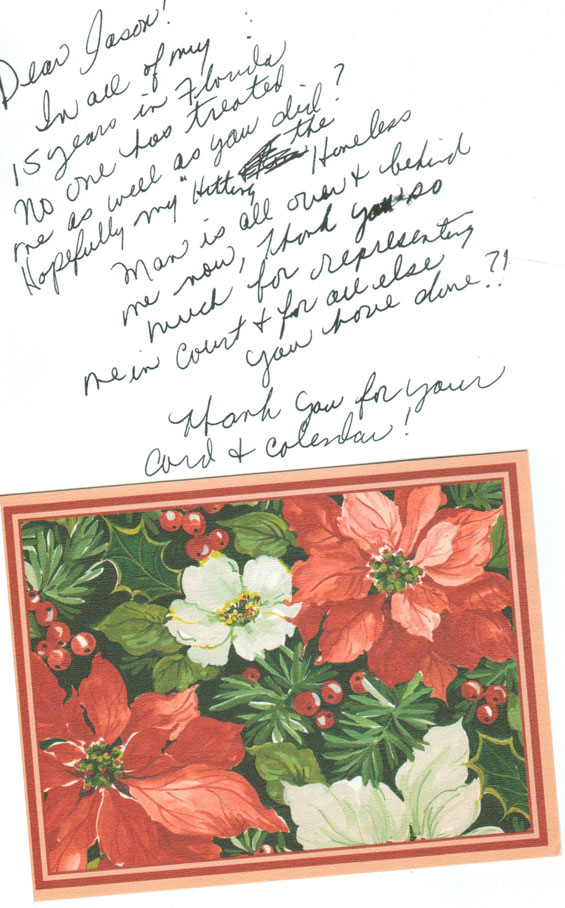 Dear Jason!
In all of my
15 years in Florida
No one has treated
me as well as you did?
Hopefully my "Hitting the Homeless
Man is all over & behind
me now, thank you so
much for representing
me in Court & for all else
you have done?!
Thank you for your
card & calendar!